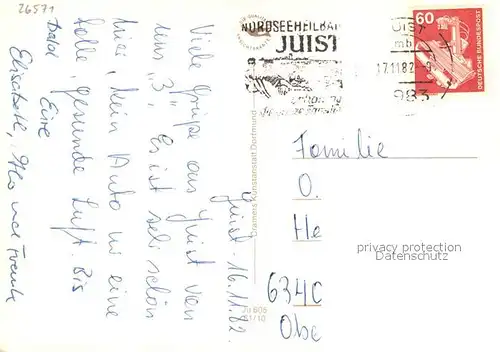 26571
Juist, 16.11.82
Viele Grüße aus Juist von
uns "3". Es ist sehr schön
hier, kein Auto nur eine
tolle, gesunde Luft. Bis
bald
Eure
Elisabeth, und Frank
NORDSEEHEILBAD
JUIST
17.11.82
983
60
DEUTSCHE BUNDESPOST
Cramers Kunstanstalt Dortmund
Ju 605
Familie
O.
He
privacy protection
Watermark
6340
Obe